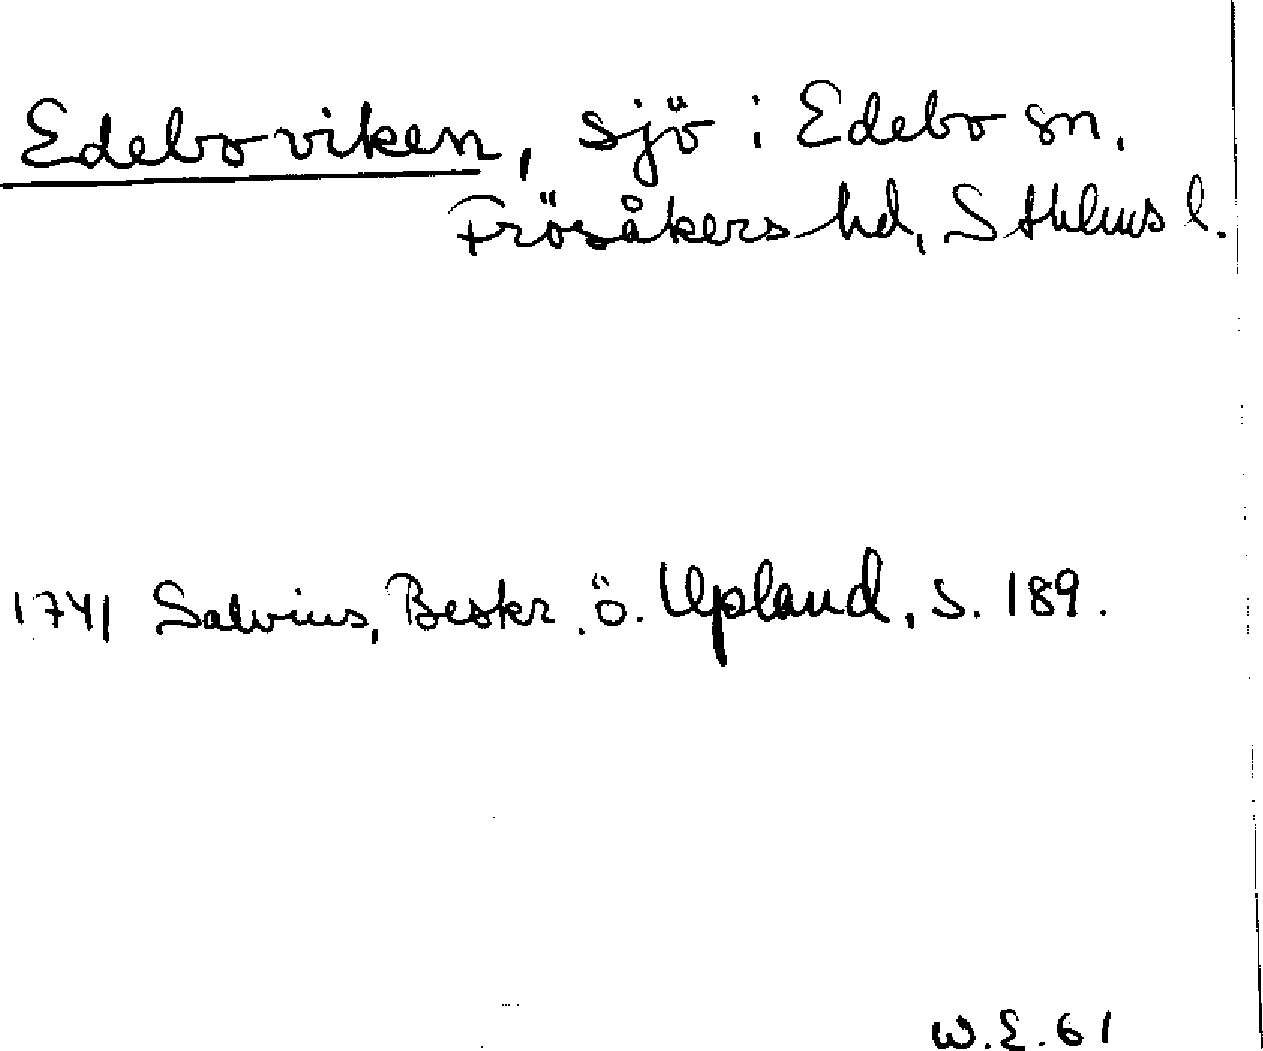 Edeboviken, sjö i Edebo sn,
Frösåkers hd, Sthlms l.
1741 Salvius, Beskr. ö. Upland, s. 189.
W.E. 61